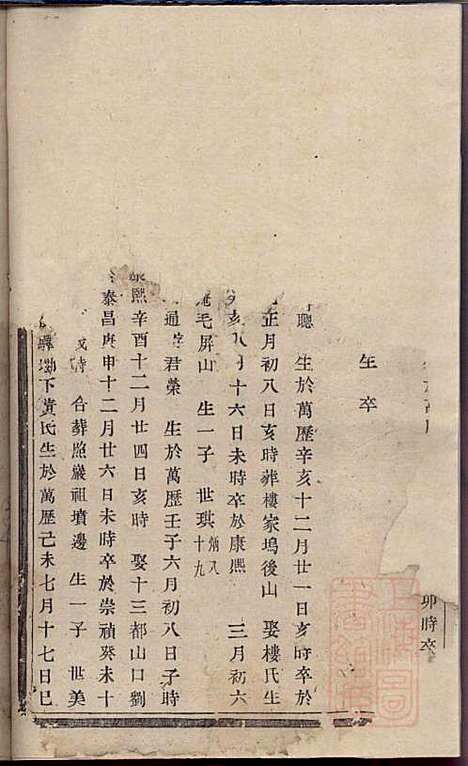 卯時卒
生卒
聰 生於萬歷辛亥十二月廿一日亥時卒於
正月初八日亥時葬樓家塢後山 娶樓氏生
亥 十六日未時卒於康熙 三月初六
毛屏山 生一子 世琪 炳八 十九
通 君榮 生於萬歷壬子六月初八日子時
熙辛酉十二月廿四日亥時 娶十三都山口劉
泰昌庚申十二月廿六日未時卒於崇禎癸未十
時 合葬照巖祖墳邊 生一子 世美
下黄氏生於萬歷己未七月十七日巳